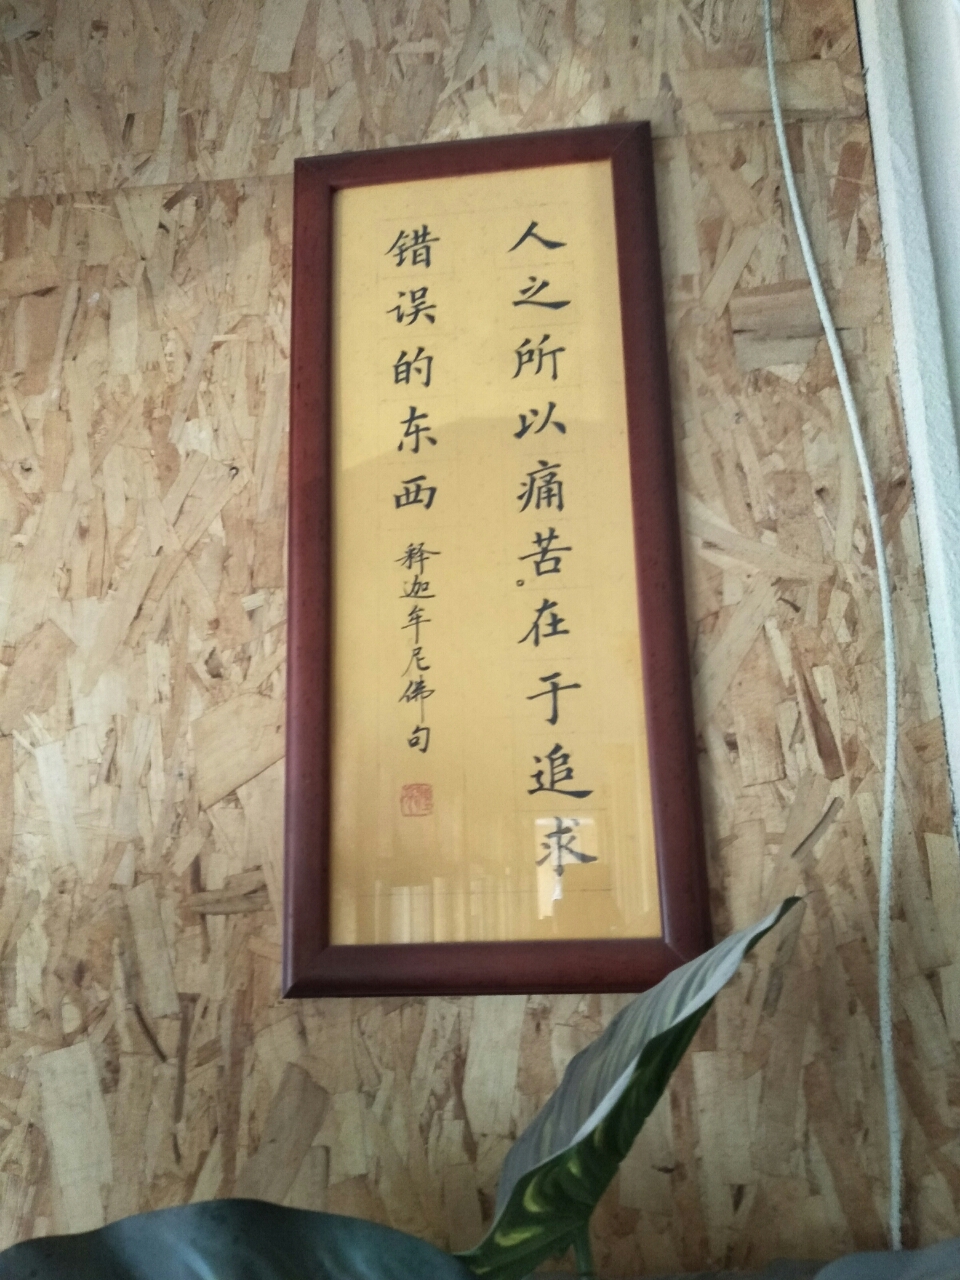 人之所以痛苦。在于追求
错误的东西 释迦牟尼佛句